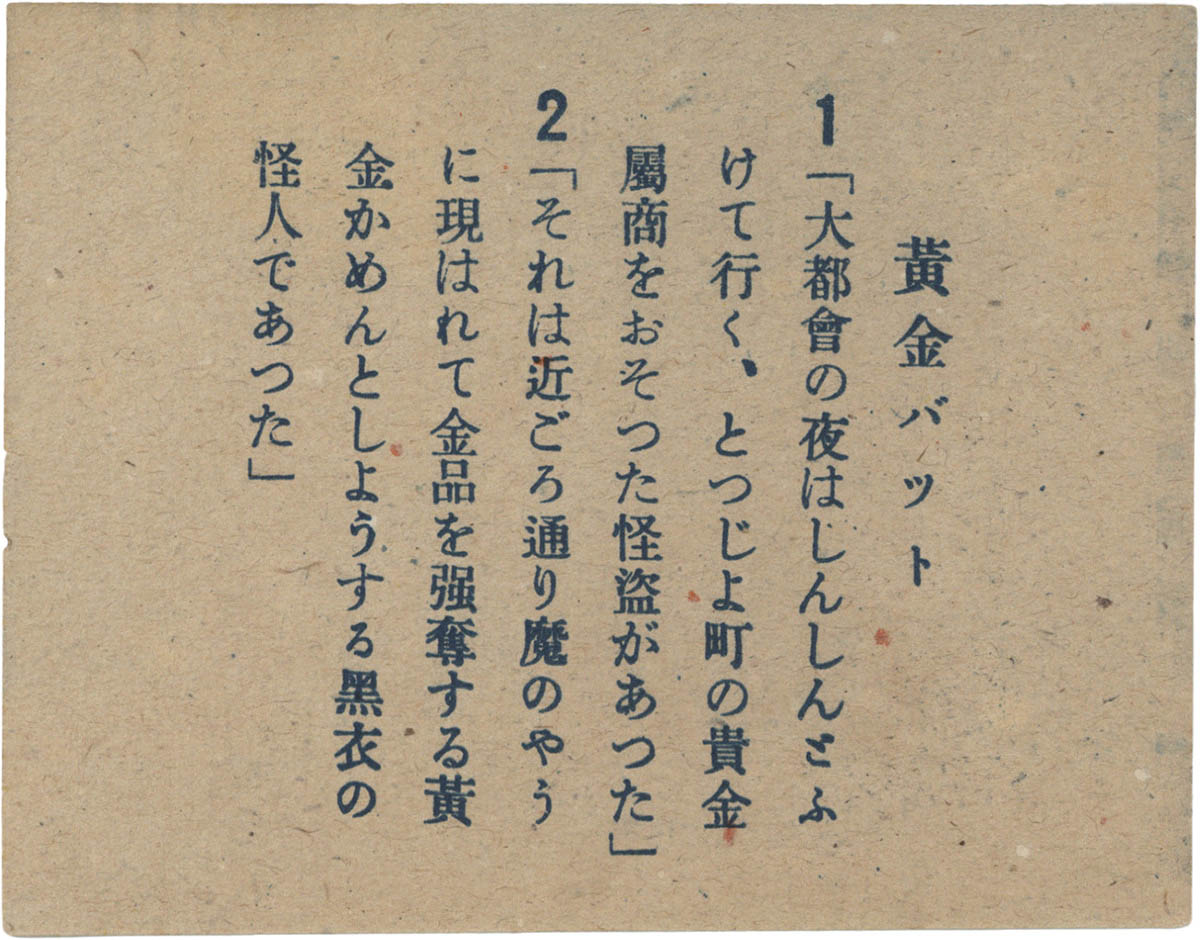 黃金バット
1「大都會の夜はしんしんとふ
けて行く、とつじよ町の貴金
屬商をおそつた怪盜があつた」
2「それは近ごろ通り魔のやう
に現はれて金品を强奪する黃
金かめんとしようする黑衣の
怪人であつた」